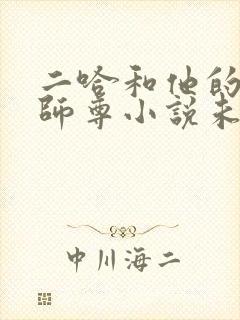 二哈和他的
師尊小說未
中川海二